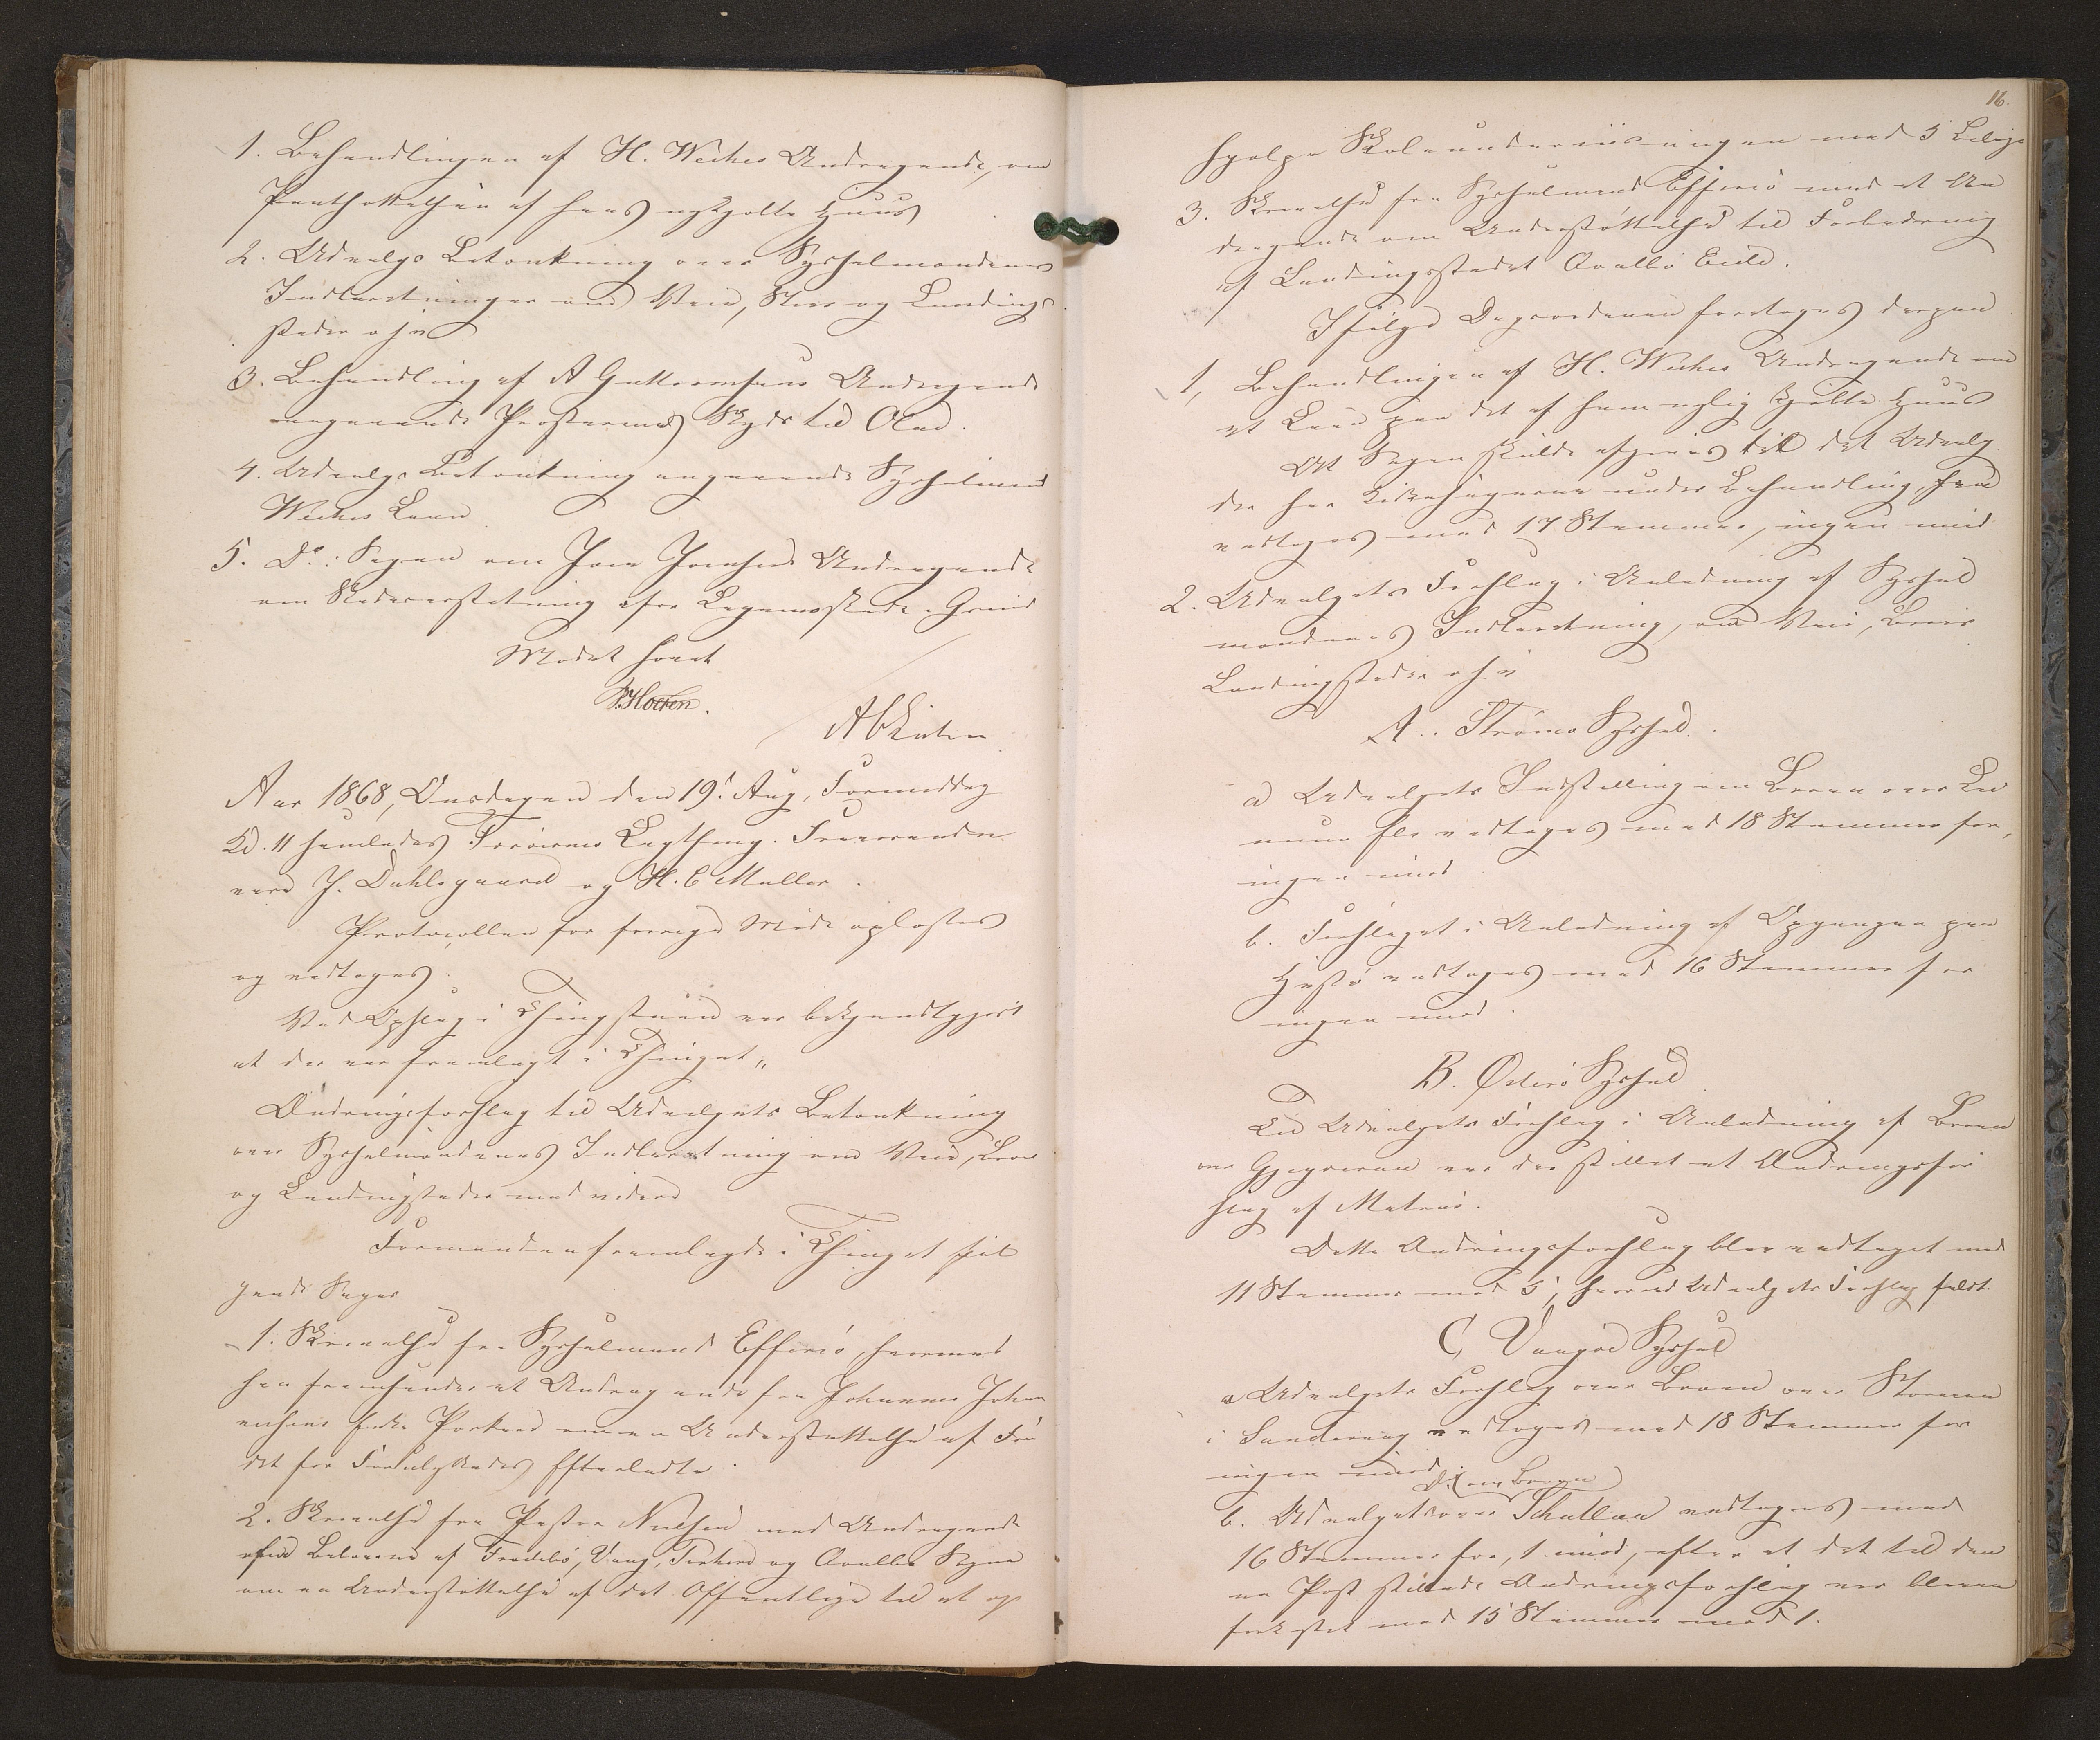 1. Behandlingen af H. Weihes Andragende, om
Panthsættelsen af hans nykjøbte Huus
2. Udvalgs Betænkning over Sysselmændenes
Indberetninger om Veie, Broer og Landings
steder o s v
3. Behandling af A Guttormsens Andragende
angaaende Præsternes Skyds til Olai.
4. Udvalgs Betænkning angaaende Sysselmand
Weihes Laan
5. Do: Sagen om Joen Joensens Andragende
om Skadeserstatning for Legemsskade i Grind
Mødet hævet
HCMüller
Aar 1868, Onsdagen den 19d Aug, Formiddag
Kl. 11 samledes Færøernes Lagthing. Fraværende
vare J. Dahlsgaard og H. C Müller.
Protocollen for forrige Møde oplæstes
og vedtoges.
Ved Opslag i Thingstuen var bekjendtgjort
at der var fremlagt i Thinget„
Ændringsforslag til Udvalgets Betænkning
over Sysselmændenes Indberetning om Veie, Broer
og Landingssteder med videre
Formanden fremlagde i Thinget føl
gende Sager
1. Skrivelse fra Sysselmand Effersø, hvormed
han fremsender et Andragende fra Johannes Johan
nesens Enke Porkere om en Understøttelse af Fon
det for Forulykkedes Efterladte.
2. Skrivelse fra Pastor Nielsen med Andragende
fra Beboerne af Frodebø, Vaag, Porkere og Ovalbø Sogne
om en Understøttelse af det Offentlige til at op
16.
hjælpe Skoleunderviisningen med 5 Bilage
3. Skrivelse fra Sysselmand Effersø med et An
dragende om Understøttelse til Forbedring
af Landingsstedet Ovalbø Eide.
Ifølge Dagsordenen foretoges derpaa
1, Behandlingen af H. Weihes Andragende om
et Laan paa det af ham nylig kjøbte Huus
At Sagen skulde afgives til det Udvalg
der har under Behandling,
vedtoges med 17 Stemmer, ingen imod
2. Udvalgets Forslag i Anledning af Syssel
mændenes Indberetning, om Veie, Broer
Landingssteder o s v
A.. Strømø Syssel.
a Udvalgets Indstilling om Broen over
vedtoges med 18 Stemmer for,
ingen imod
b. Forslaget i Anledning af Opgangen paa
Hestø vedtoges med 16 Stemmer for
ingen imod.
B. Østerø Syssel
Til Udvalgets Forslag i Anledning af Broen
over Gjogvaraa var der stillet et Ændringsfor
slag af Matras.
Dette Ændringsforslag blev vedtaget med
11 Stemmer mod 5, hvorved Udvalgets Forslag faldt
C, Vaagø Syssel
a Udvalgets Forslag over Broen over Storaaen
i Sandevaag vedtoges med 18 Stemmer for
ingen imod
F. (om Broen)
b. Udvalgets over Skatlaa vedtoges med
16 Stemmer for, 1 imod, efter at det til den
ne Post stillede Ændringsforslag var bleven
forkastet med 15 Stemmer mod 1.